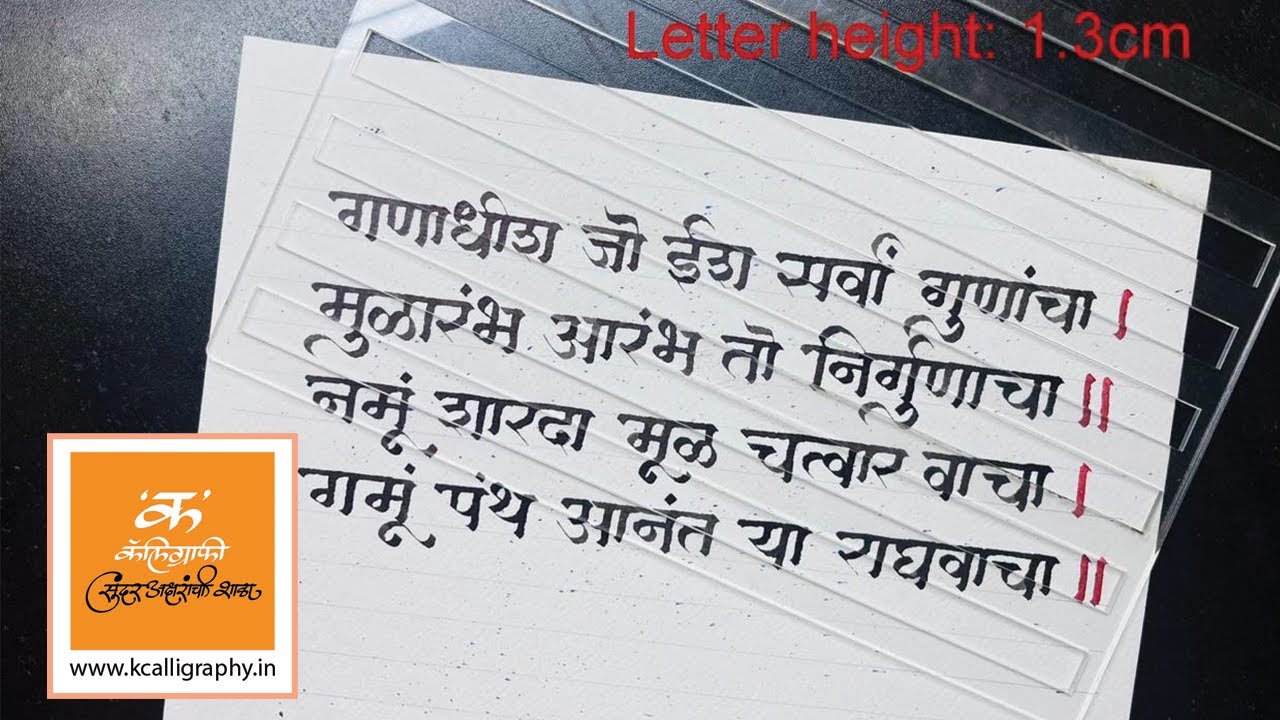 Letter height: 1.3cm
गणाधीश जो ईश सर्वां गुणांचा ।
मुळारंभ आरंभ तो निर्गुणाचा ॥
नमूं शारदा मूळ चत्वार वाचा ।
गमूं पंथ आनंत या राघवाचा ॥
'क'
कॅलिग्राफी
सुंदर अक्षरांची शाळा
www.kcalligraphy.in